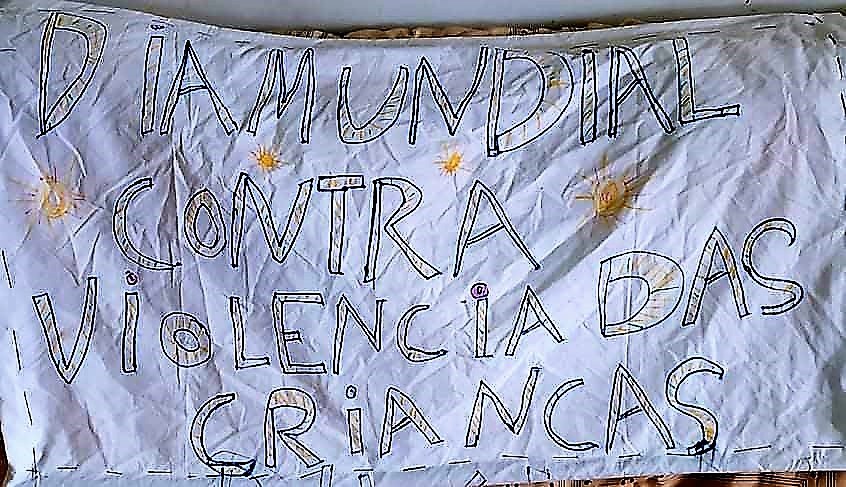 DiA MUNDIAL
CONTRA
ViOLENCiA DAS
CRiANCAS